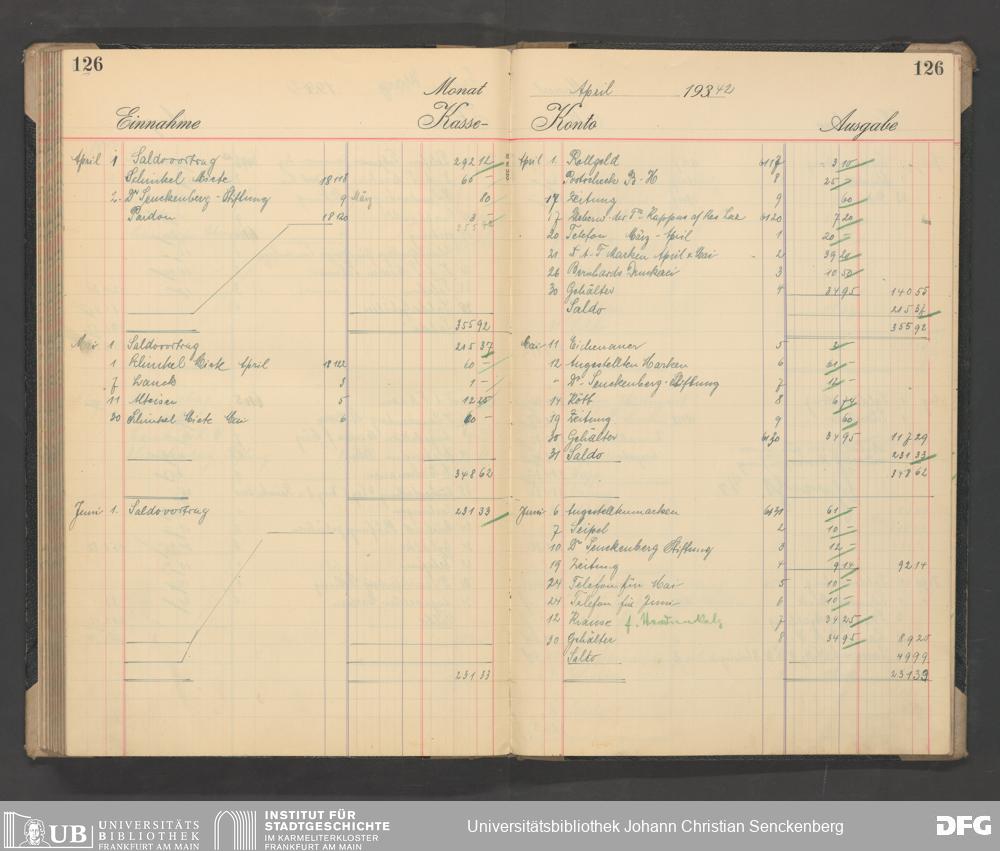 126
Monat
Einnahme
Kasse-
April 1 Saldovortrag 292 12
Schinkel Miete 18 118 60 -
2. Dr Senckenberg-Stiftung 9 März 80
Pardon 18 120 3 -
355 92
Mai 1 Saldovortrag 215 37
1 Schinkel Miete April 18 122 60 -
7 3 1 -
11 Alteisen 5 12 25
30 Schinkel Miete Mai 6 60 -
348 62
Juni 1. Saldovortrag 231 33
231 33
126
April 193 42
Konto
Ausgabe
April 1. Rollgeld 3 10
Postscheck 8 25
17 Zeitung 9 60
17 20 7 20
20 Telefon März-April 1 20 -
21 Marken April + Mai 2 39 20
26 Bernhards Druckerei 3 10 50
30 Gehälter 4 34 95 140 55
Saldo 215 37
355 92
Mai 11 Eichenauer 5
12 Angestellten Marken 6 61 -
" Dr. Senckenberg-Stiftung 7 12 -
14 8 6 74
19 Zeitung 9 60
30 Gehälter 34 95 117 29
31 Saldo 231 33
348 62
Juni 6 Angestelltenmarken 61 -
7 Seipel 2 10 -
10 Dr Senckenberg Stiftung 3 12 -
19 Zeitung 4 9 14 92 14
24 Telefon für Mai 5 10 -
24 Telefon für Juni 6 10 -
12 Krause f. 7 34 25
30 Gehälter 8 34 95 89 20
Saldo 49 99
231 33
UB UNIVERSITÄTS
BIBLIOTHEK
FRANKFURT AM MAIN
INSTITUT FÜR
STADTGESCHICHTE
IM KARMELITERKLOSTER
FRANKFURT AM MAIN
Universitätsbibliothek Johann Christian Senckenberg
DFG